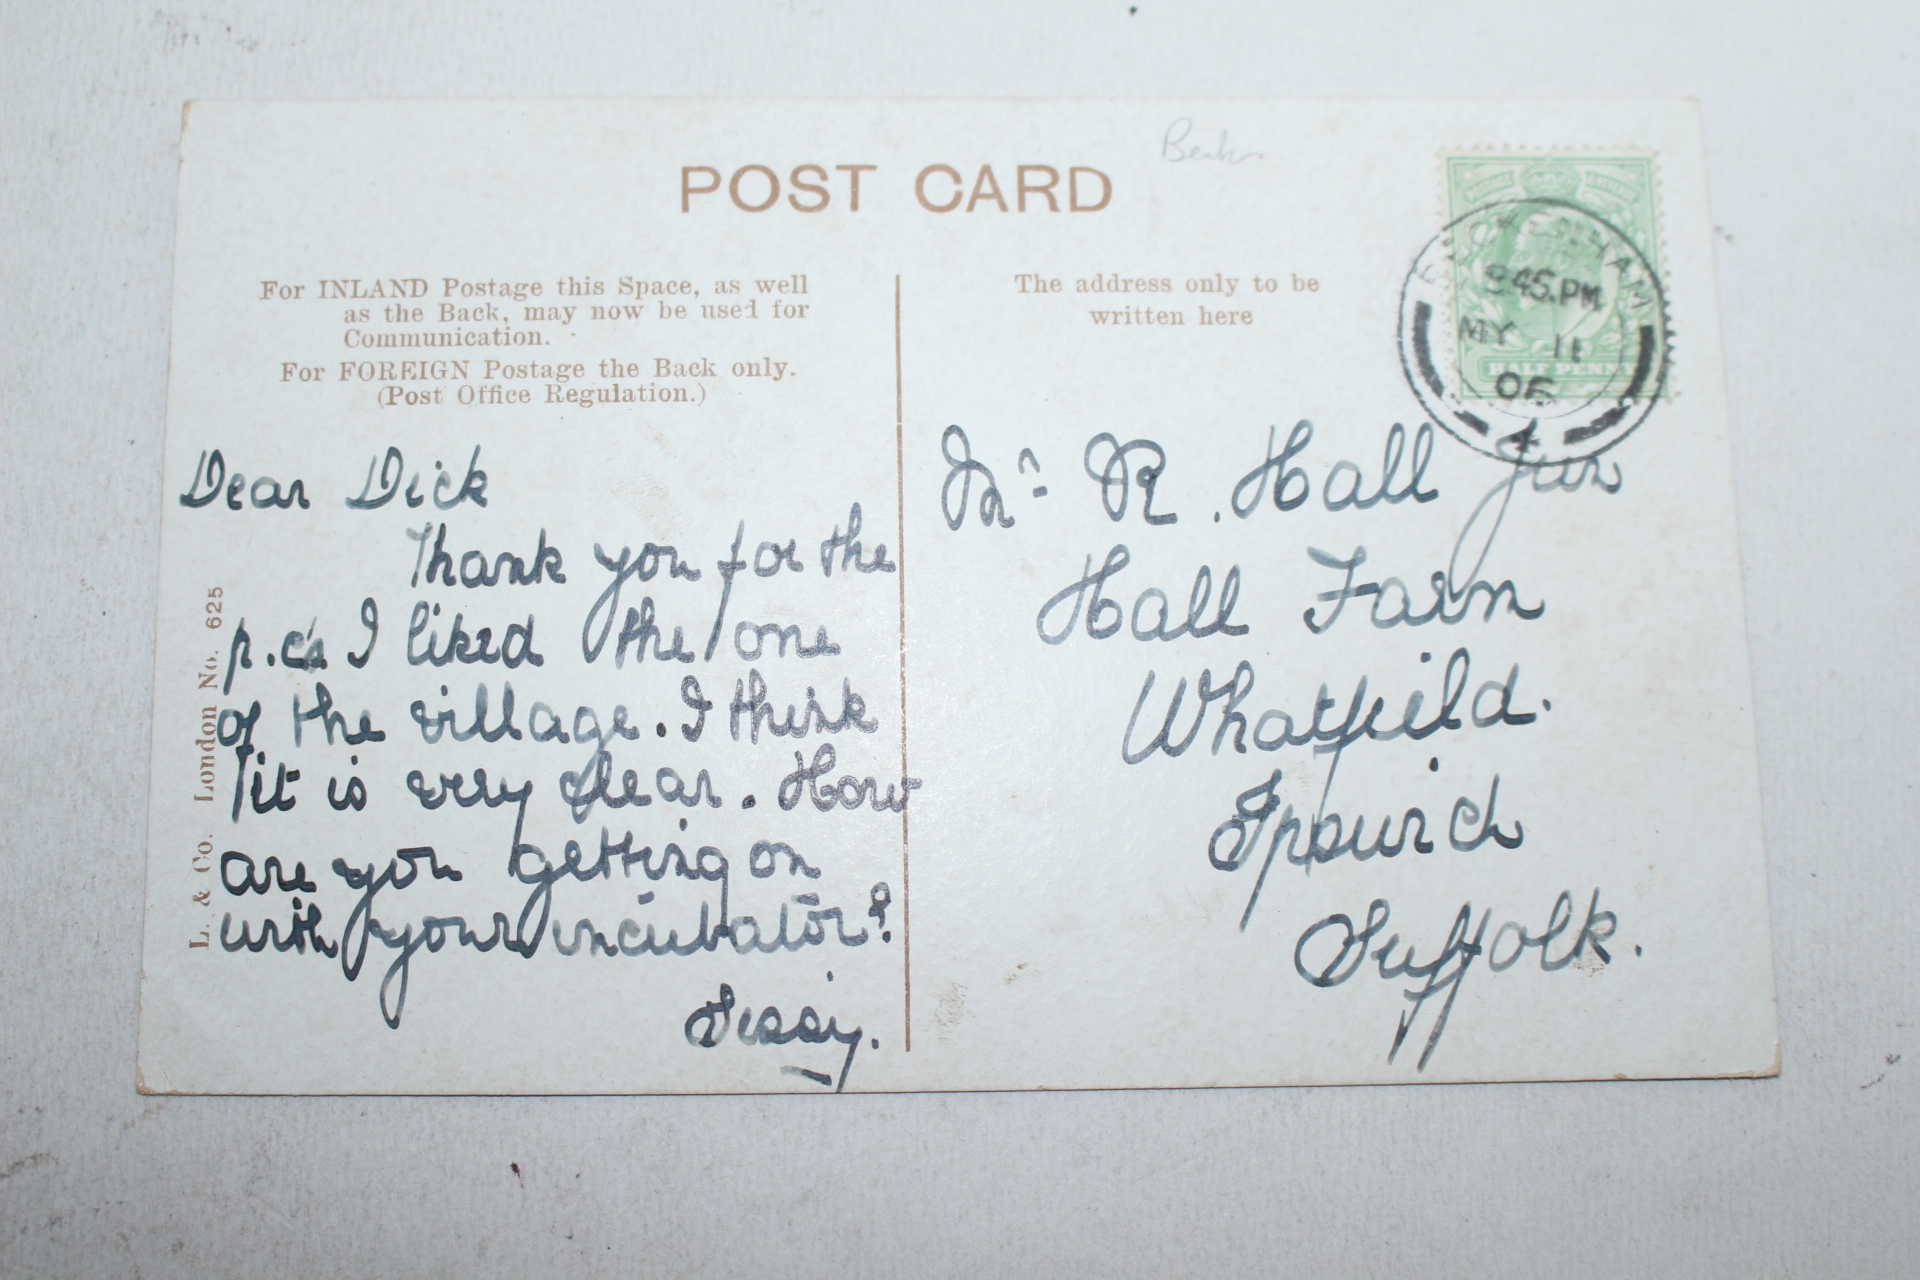 POST CARD
For INLAND Postage this Space, as well
as the Back, may now be used for
Communication.
For FOREIGN Postage the Back only.
(Post Office Regulation.)
The address only to be
written here
BECKENHAM
45.PM
MY 11
06
HALF PENNY
Dear Dick
Thank you for the
p.c's I liked the one
of the village. I think
it is very clear. How
are you getting on
with your incubator?
Sissy.
L. & Co. London No. 625
Mr R. Hall Jun
Hall Farm
Whatfield.
Ipswich
Suffolk.